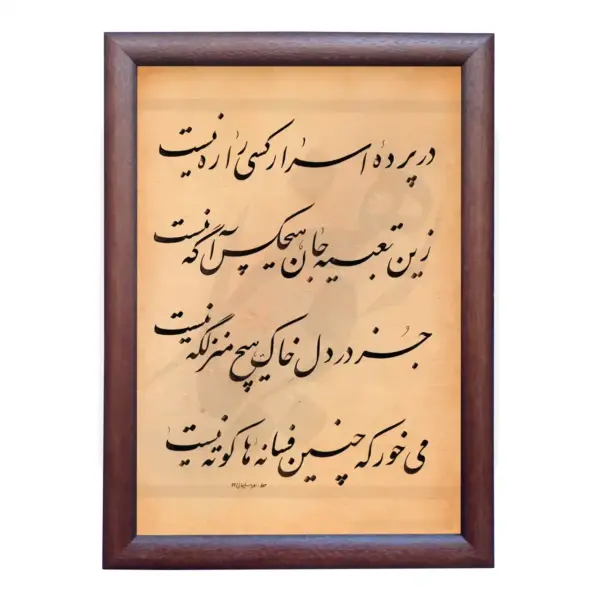 در پرده اسرار کسی را ره نیست
زین تعبیه جان هیچکس آگه نیست
جز در دل خاک هیچ منزلگه نیست
می خور که چنین فسانه ها کوته نیست